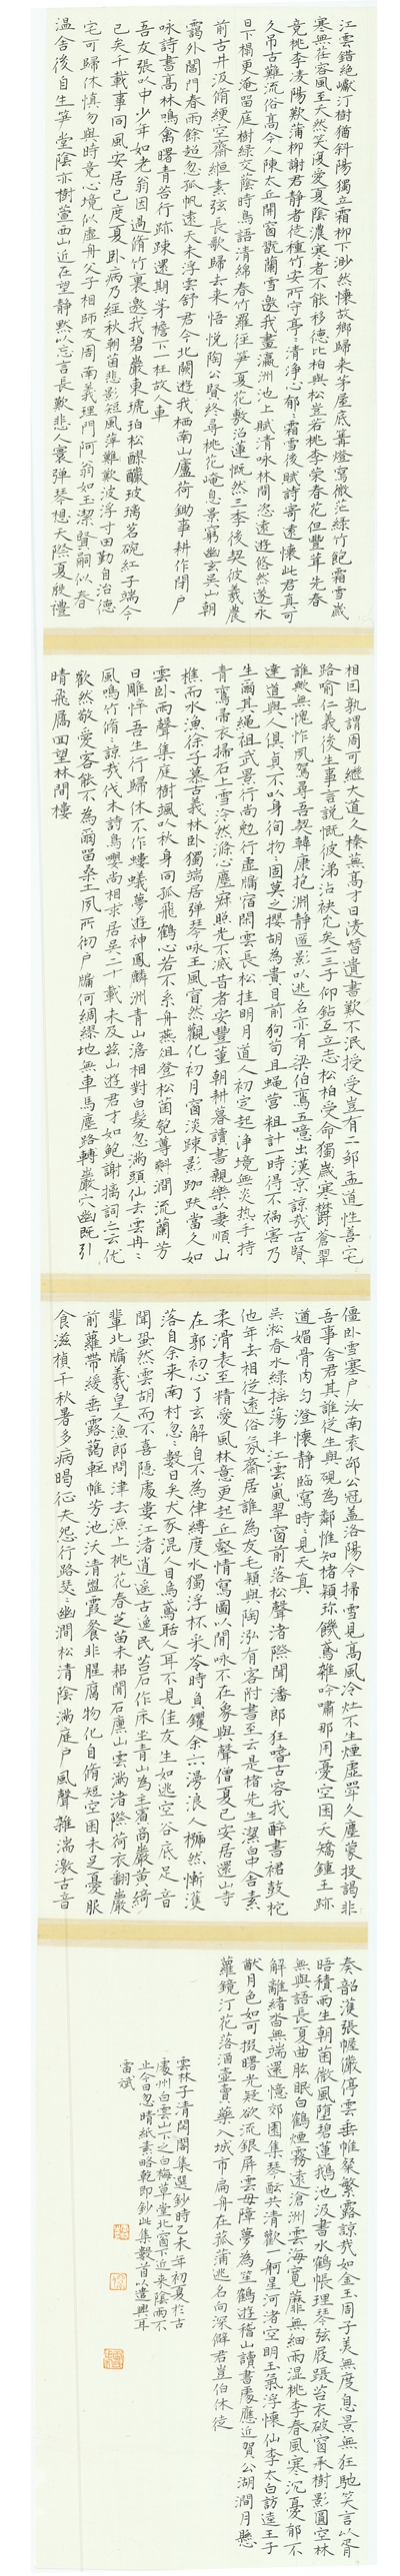 江雲錯絶巘汀樹猶斜陽獨立霜柳下渺然懷故鄉歸来茅屋底篝燈寫微茫綠竹飽霜雪歲
寒無荏容風至夭然笑渡愛夏陰濃寒者不能移德比柏與松豈若桃李榮春花但豐茸先春
竟桃李凌陽歎蒲柳謝君静者徒種竹安所守亭亭清淨心郁郁霜雪後賦詩寄遠懷此君真可
久吊古難流俗高今人陳太丘開窗説蘭雪邀我畫瀛洲池上賦清咏林間恣遠遊悠然遂永
日下榻更淹留庭樹綠交蔭時鳥語清綿春竹羅往笋夏花敷沼蓮慨然三季後契彼羲農
前古井汲脩綆空齋絙素弦長歌歸去来悟悦陶公賢終尋桃花崦息景窮幽玄吳山朝
靄外閶門春雨餘超忽孤帆遠天末浮雲舒君今北闕遊我栖南山廬荷鋤事耕作閉户
咏詩書高林鳴禽曙青苔行跡踈還期茅檐下一枉故人車
吾友張以中少年如老翁因過脩竹裏邀我碧巖東琥珀松醪釅玻璃茗碗紅子端今
已矣千載事同風安居已度夏卧病乃經秋朝菌悲影短風萍難歎波浮寸田勤自治德
宅可歸休慎勿與時竟心境似虚舟父子相師友周南義理門阿翁如玉潔賢嗣以春
温舍後自生笋堂陰亦樹萱西山近在望静默以忘言長歎悲人寰彈琴想天際夏殷禮
相因孰謂周可繼大道久榛無高才日凌替遺書歎不泯授受豈有二鄒孟道性善宅
路喻仁義後生事言説慨彼涕沾袂允矣二三子仰鉆互立志松柏受命獨歲寒欝蒼翠
誰歟無愧怍夙駕尋吾契韓康抱淵静匿影以逃名亦有梁伯鸞五噫出漢京諒哉古賢
達道與人俱貞不以身徇物物固莫之攖胡為貴目前狗苟且蠅營粗計一時得不禍害乃
生爾其繩祖武景行尚勉行虚牖宿閒雲長松挂明月道人初定起浄境無炎热手持
青鸞帚衣掃石上雪泠然滌心塵寂照光不滅昔者安豐董朝耕暮讀書親樂以妻順山
樵而水漁徐子慕古義林卧獨端居彈琴咏王風窅然觀化初月窗淡踈影跏趺當久如
雲卧雨聲集庭樹颯以秋身同孤飛鶴心若不系舟燕俎登松菌匏尊㪺澗流蘭芳
日雕悴吾生行歸休不作螻蟻夢遊神鳳麟洲青山澹相對白髮忽滿頭仙去雲冉冉
風鳴竹脩諒哉伐木詩鳥嚶尚相求居吳二十載未及茲山遊君才如鮑謝摛詞云优
歡然敬愛客能不為爾留桑土夙所彻户牖何綢繆地無車馬塵路轉巖穴幽既引
晴飛雁回望林間樓
僵卧雪塞户汝南袁邵公冠盖洛陽令掃雪見高風冷灶不生煙虚甼久塵蒙投謁非
吾事舍君其誰從生與硯為鄰惟知楮穎珎饑鳶雜吟嘯那用憂空囷夭矯鍾王跡
遒媚骨肉匀澄懷静臨寫時時見天真
吳淞春水綠摇蕩半江雲嵐翠窗前落松聲渚際聞潘郎狂嗜古容我醉書裙鼓柁
他年去相從遠俗氛齋居誰為友毛穎與陶泓有客附書至云是楮先生潔白中含素
柔滑表至精愛風林意更起丘壑情寫圖以閒咏不在象與聲僧夏已安居還山寺
在郭初心了玄解自不為律縛度水獨浮杯采苓時負钁余亦漫浪人然慚濩
落自余来南村忽忽數日矣犬豕混人目烏鳶聒人耳不見佳友生如逃空谷底足音
聞跫然雲胡而不喜隱處婁江渚逍遥古逸民苔石作床坐青山為主賓商巖黄綺
輩北牖羲皇人漁郎問津去源上桃花春芝苗未耜閒石廩山雲滿渚際荷衣翻巖
前蘿帶緩垂露藹輕帷芳池沃清盥霞餐非腥腐物化自脩短空囷未足憂服
食滋楨千秋暑多病暍征夫怨行路瑟瑟幽澗松清陰滿庭户風聲雜湍激古音
奏韶濩張幄儼停雲垂帷粲繁露諒哉如金玉周子美無度息景無狂馳笑言以胥
晤積雨生朝菌微風堕碧蓮鵝池汲書水鶴帳理琴弦屐躡苔衣破窗承樹影圓空林
無與語長夏曲肱眠白鶴煙霧遠滄洲雲海寬蘼蕪細雨濕桃李春風寒沉憂郁不
解離緒杳無端還憶郊園集琴酝共清歡一舸星河渚空明玉氣浮懷仙李太白訪逵王子
猷月色如可掇曙光疑欲流銀屏雲母障夢為笙鶴遊稽山讀書處應近賀公湖澗月懸
蘿鏡汀花落酒壺賣藥入城市扁舟在菰蒲逃名向深僻君豈伯休徒
雲林子清閟閣集選鈔時乙未年初夏於古
處州白雲山下之白梅草堂北窗下近来陰雨不
止今日忽晴紙素略乾即鈔此集數首以遣興耳
雷斌